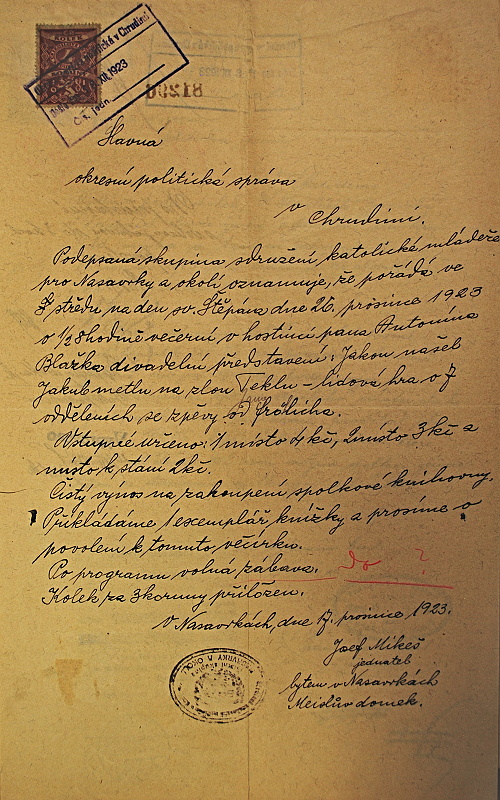 KOLEK
politická v Chrudimi
XII 1923
Č. j.
81296
Slavná
okresní politická správa
v Chrudimi.
Podepsaná skupina sdružení katolické mládeže
pro Nasavrky a okolí oznamuje, že pořádá ve
středu na den sv. Štěpána dne 26. prosince 1923
o 1/2 8 hodině večerní v hostinci pana Antonína
Blažka divadelní představení: Jakou našel
Jakub metlu na zlou Teklu – lidová hra o 7
odděleních se zpěvy od Frölicha.
Vstupné určeno: 1 místo 4 kč, 2 místo 3 kč a
místo k stání 2 kč.
Čistý výnos na zakoupení spolkové knihovny.
Přikládáme 1 exemplář knížky a prosíme o
povolení k tomuto večírku.
Po programu volná zábava. do ?
Kolek za 3 koruny přiložen.
V Nasavrkách, dne 17. prosince 1923.
Josef Mikeš
jednatel
bytem v Nasavrkách
Meislův domek.
NASAVRKY A OKOLÍ